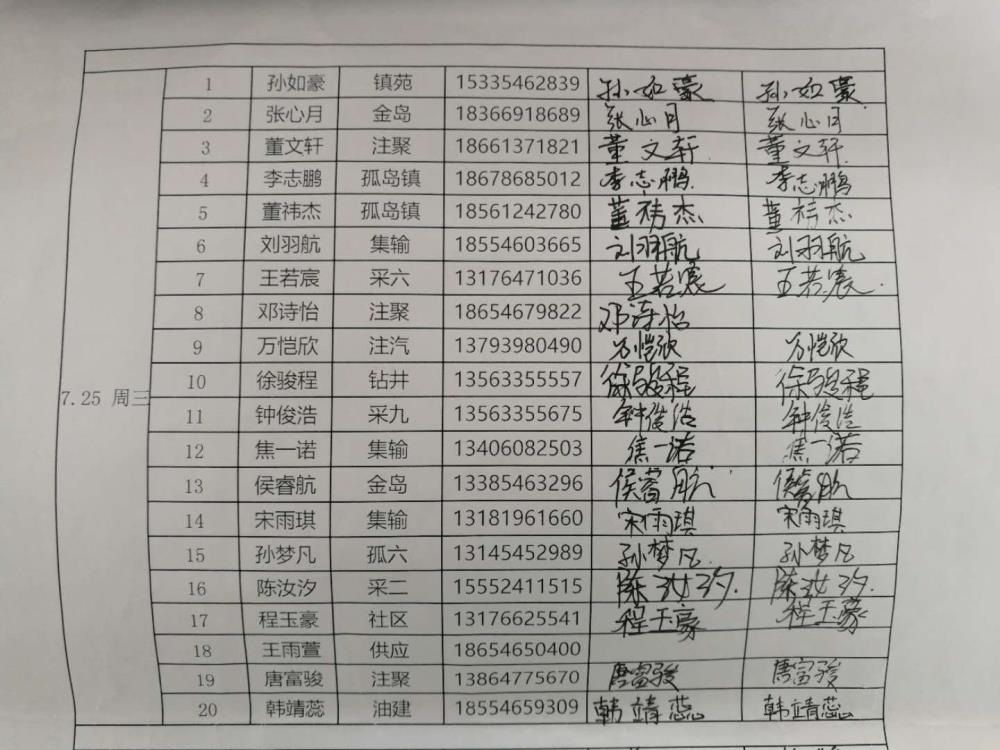 1 孙如豪 镇苑 15335462839 孙如豪 孙如豪
2 张心月 金岛 18366918689 张心月 张心月
3 董文轩 注聚 18661371821 董文轩 董文轩
4 李志鹏 孤岛镇 18678685012 李志鹏 李志鹏
5 董祎杰 孤岛镇 18561242780 董祎杰 董祎杰
6 刘羽航 集输 18554603665 刘羽航 刘羽航
7 王若宸 采六 13176471036 王若宸 王若宸
8 邓诗怡 注聚 18654679822 邓诗怡
9 万恺欣 注汽 13793980490 万恺欣 万恺欣
10 徐骏程 钻井 13563355557 徐骏程 徐骏程
7.25 周三
11 钟俊浩 采九 13563355675 钟俊浩 钟俊浩
12 焦一诺 集输 13406082503 焦一诺 焦一诺
13 侯睿航 金岛 13385463296 侯睿航 侯睿航
14 宋雨琪 集输 13181961660 宋雨琪 宋雨琪
15 孙梦凡 孤六 13145452989 孙梦凡 孙梦凡
16 陈汝汐 采二 15552411515 陈汝汐 陈汝汐
17 程玉豪 社区 13176625541 程玉豪 程玉豪
18 王雨萱 供应 18654650400
19 唐富骏 注聚 13864775670 唐富骏 唐富骏
20 韩靖蕊 油建 18554659309 韩靖蕊 韩靖蕊